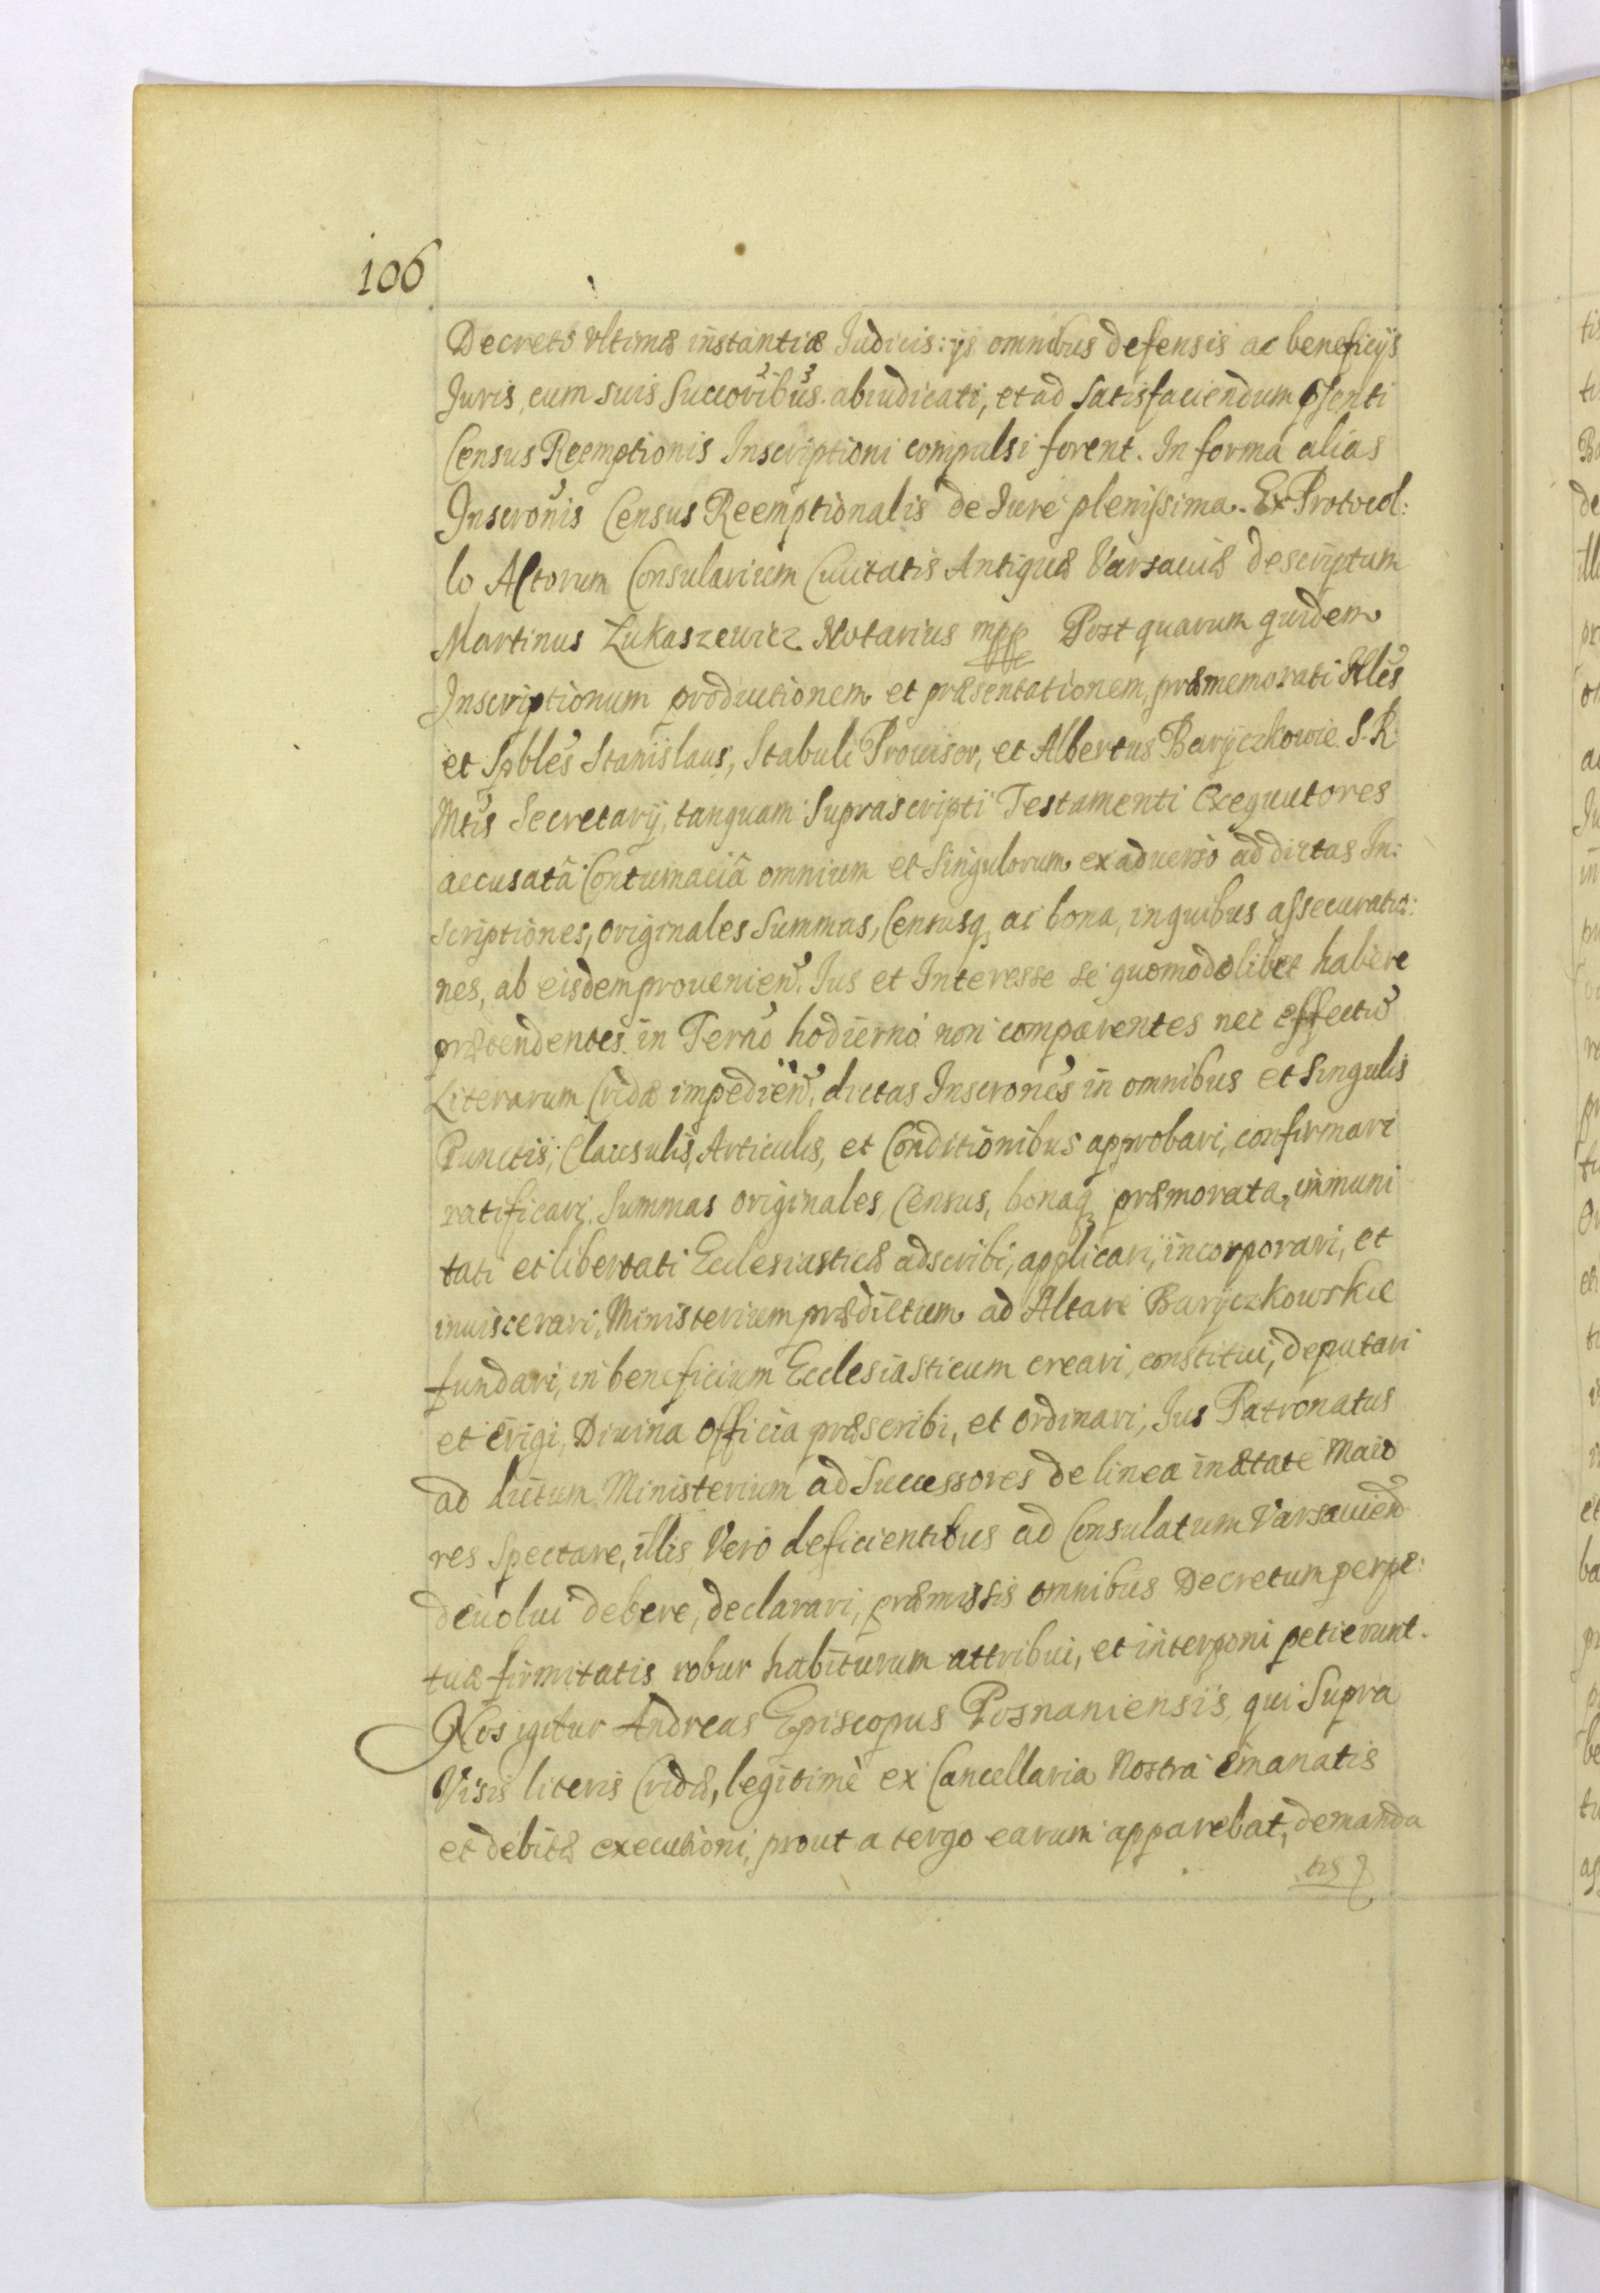 106
Decreto Vltimæ instantiæ Iudicis: ijs omnibus defensis ac beneficijs
Juris, cum suis Succoribus abiudicati, et ad satisfaciendum pñti
Census Reemptionis Inscriptioni compulsi forent. In forma alias
Inscronis Census Reemptionalis de Iure plenissima. Ex Protocol:
lo Actorum Consularium Ciuitatis Antiquæ Varsauiæ descriptum
Martinus Lukaszewicz Notarius mpp Post quarum quidem
Inscriptionum productionem et præsentationem, præmemorati Nles
et Spbles Stanislaus, Stabuli Prouisor, et Albertus Baryczkowie S. R.
Mtis Secretarij, tanquam Suprascripti Testamenti Exequutores
accusatâ Contumaciâ omnium et Singulorum ex aduerso ad dictas In:
scriptiones, originales Summas, Censusq ac bona, in quibus assecuratio:
nes, ab eisdem prouenien. Ius et Interesse se quomodolibet habere
prætendentes in Terno hodierno non comparentes nec effectu
Literarum Cridæ impedien, dictas Inscrones in omnibus et Singulis
Punctis, Clausulis, Articulis, et Conditionibus approbari, confirmari
ratificari. Summas originales, Census, bonaq præmorata, immuni
tati et libertati Ecclesiasticæ adscribi, applicari, incorporari, et
inuiscerari, Ministerium prædictum ad Altare Baryczkowskie
fundari, in beneficium Ecclesiasticum creari, constitui, deputari
et erigi, Diuina Officia præscribi, et ordinari, Ius Patronatus
ad dictum Ministerium ad Successores de linea in ætate Maio
res Spectare, illis Vero deficientibus ad Consulatum Varsauien
deuolui debere, declarari, præmissis omnibus Decretum perpe:
tuæ firmitatis robur habiturum attribui, et interponi petierunt.
Nos igitur Andreas Episcopus Posnaniensis, qui Supra
Visis literis Cridæ, legitimè ex Cancellaria Nostra emanatis
et debitæ executioni, prout a tergo earum apparebat, demanda
tis